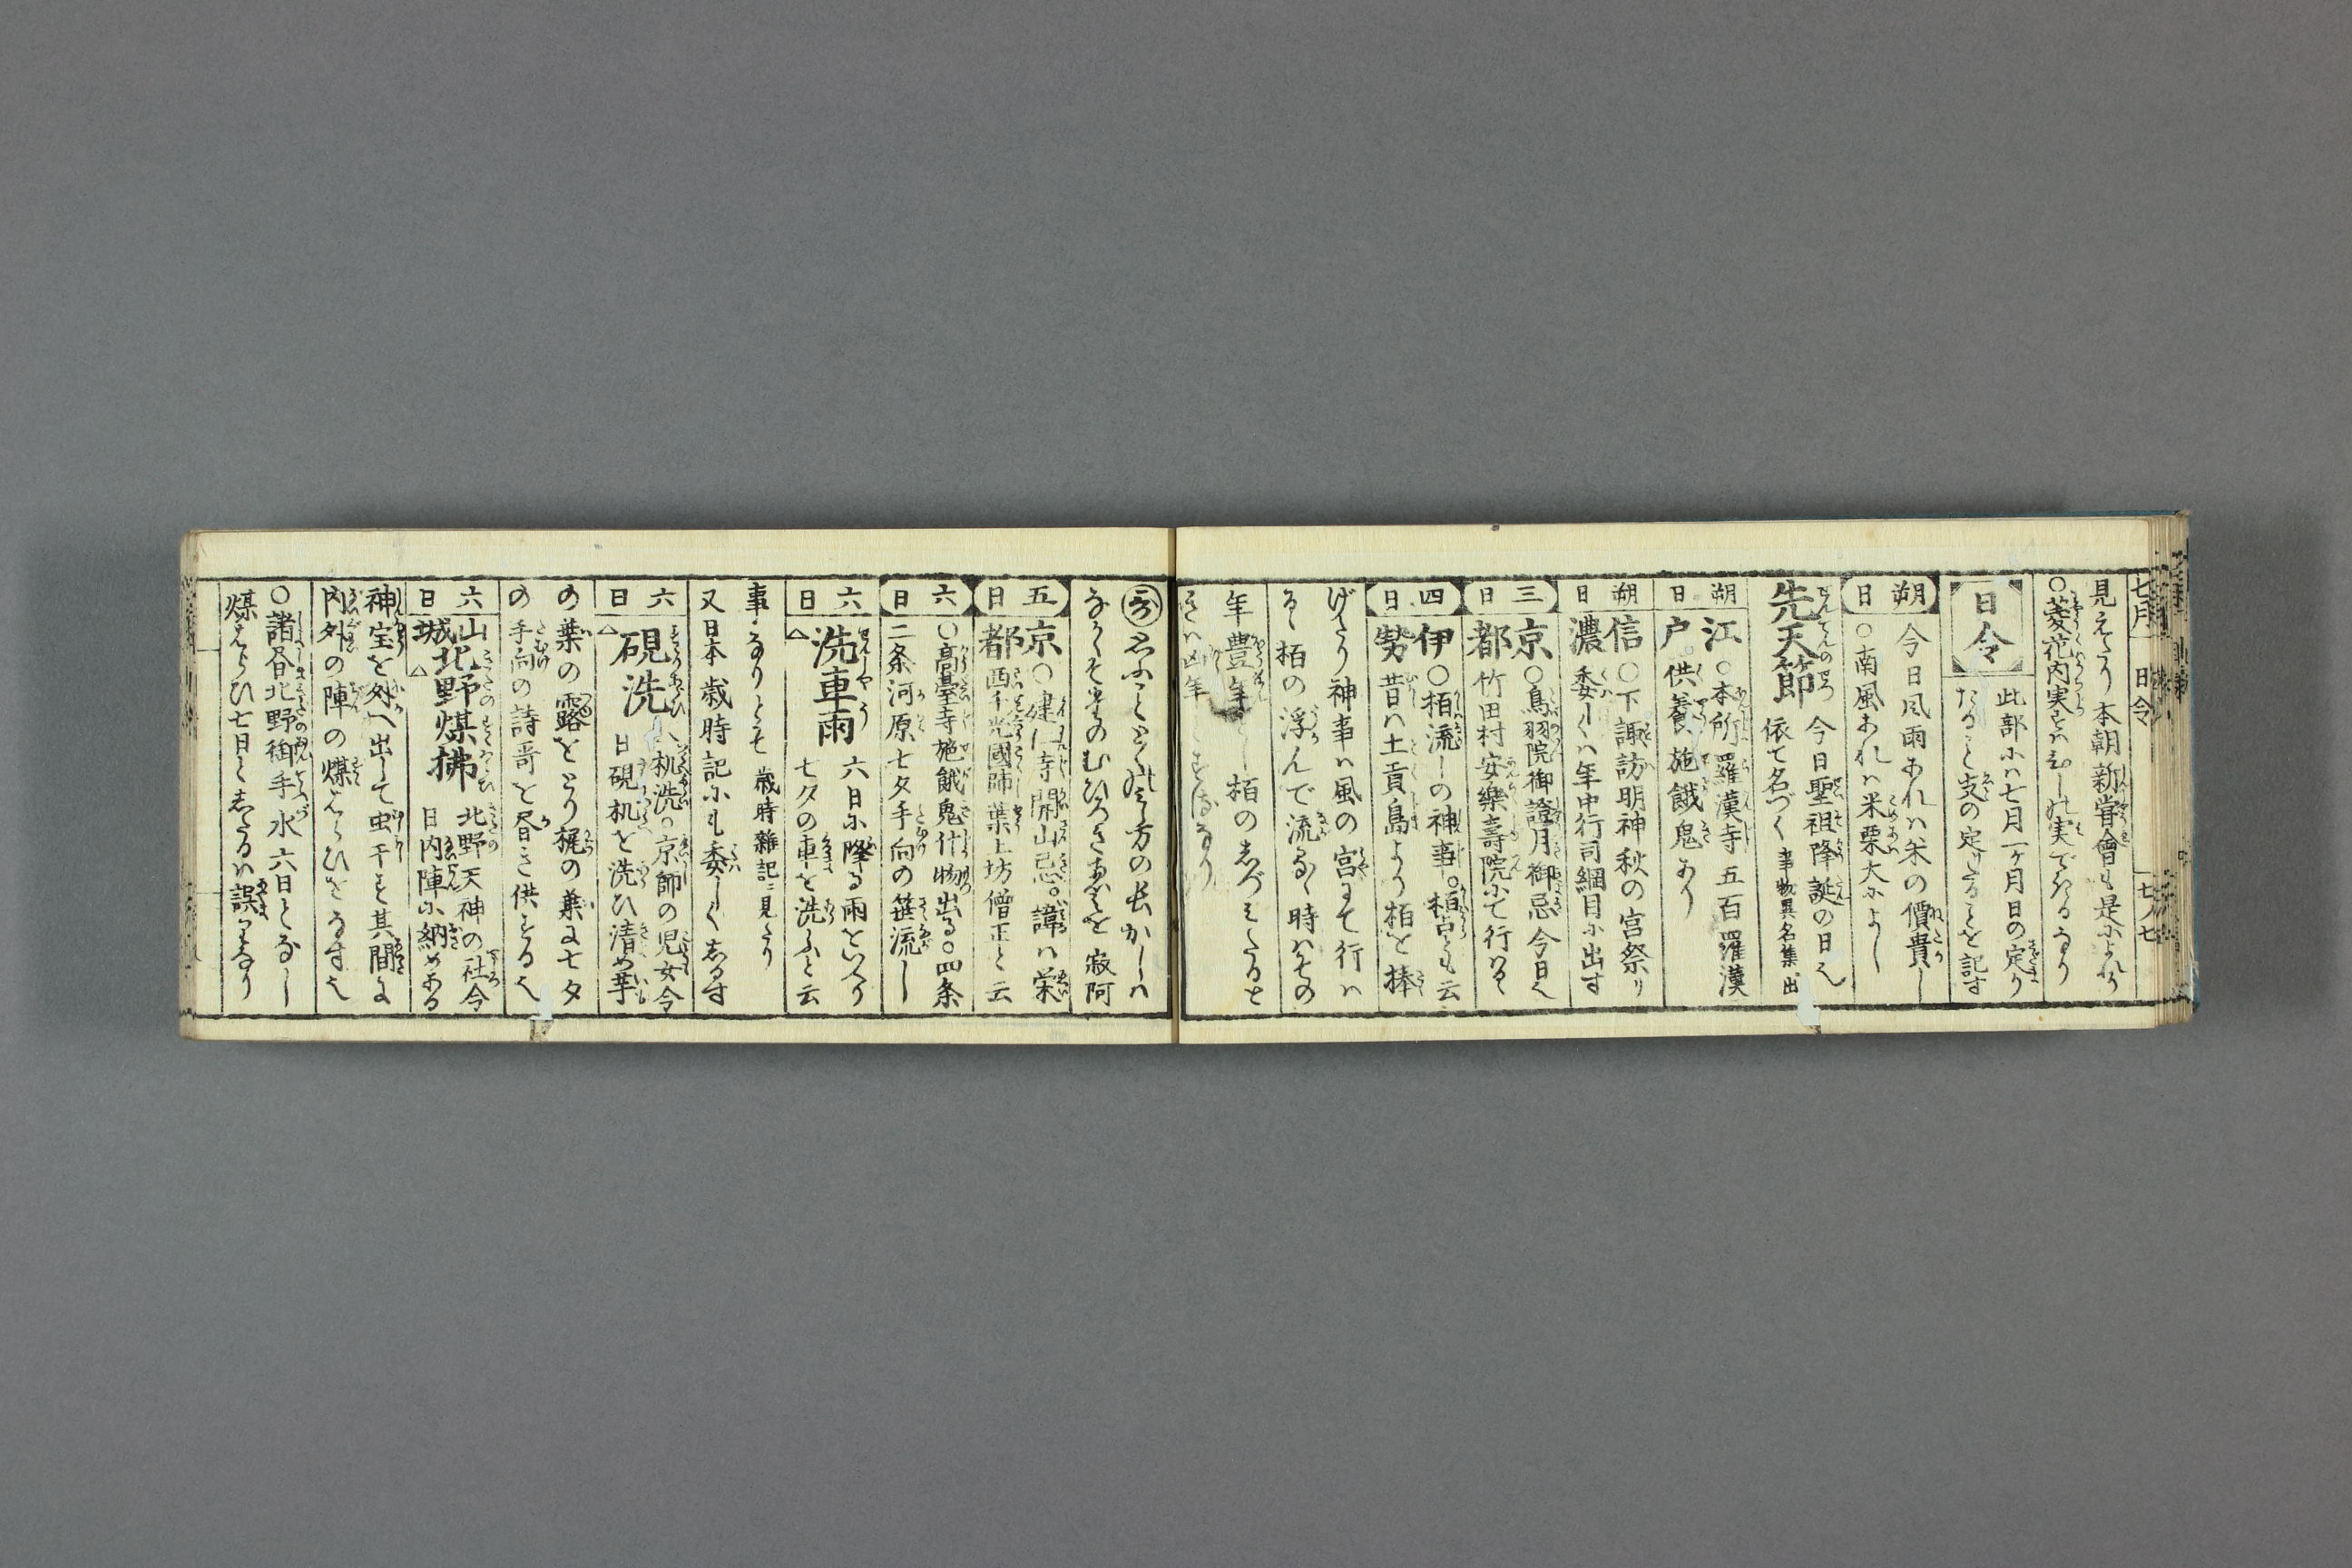 七月 日令 七ノ七
見えたり本朝新嘗會も是によれり
○菱花内実
日令
此部にハ七月一ヶ月日の定り
たること支の定りたることを記す
朔日
今日風雨あれハ米の價貴し
○南風あれハ米粟大によし
先天節
今日聖祖降誕の日也
依て名づく 事物異名集出
朔日
江戸
○本所羅漢寺五百羅漢
供養施餓鬼あり
朔日
信濃
○下諏訪明神秋の宮祭り
委しくハ年中行司綱目に出す
三日
京都
○鳥羽院御證月御忌今日也
竹田村安樂壽院にて行はる
四日
伊勢
○栢流しの神事○栢占とも云
昔ハ土貢島より栢を捧
げたり神事ハ風の宮にて行ハ
る 栢の浮んで流るゝ時ハその
年豊年 栢の
きハ凶年
寂阿
五日
京都
○建仁寺開山忌○諱ハ栄
西千光國師葉上坊僧正と云
六日
○高臺寺施餓鬼什物出る○四条
二条河原七夕手向の笹流し
六日
洗車雨
六日に降る雨をいへり
七夕の車を洗ふと云
事なりとそ 歳時雜記ニ見たり
又日本歳時記にも委しくしるす
六日
硯洗
机洗○京師の児女今
日硯机を洗ひ清め芋
の葉の露をとり梶の葉に七夕
の手向の詩哥を書き供する也
六日
山城
北野煤拂
北野天神の社今
日内陣に納めある
神宝を外へ出して虫干す其間に
内外の陣の煤はらひをなす也
○諸書北野御手水六日となし
煤はらひ七日としたるハ誤りなり